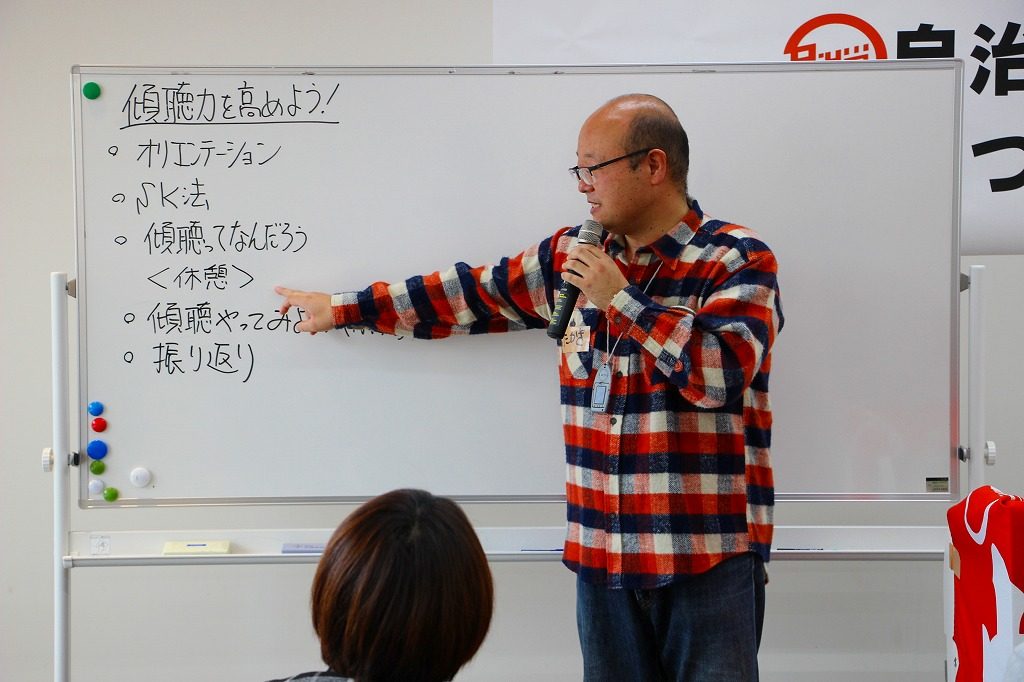 傾聴力を高めよう！
○ オリエンテーション
○ SK法
○ 傾聴ってなんだろう
＜休憩＞
○ 傾聴やってみよ
○ 振り返り
自治
つ